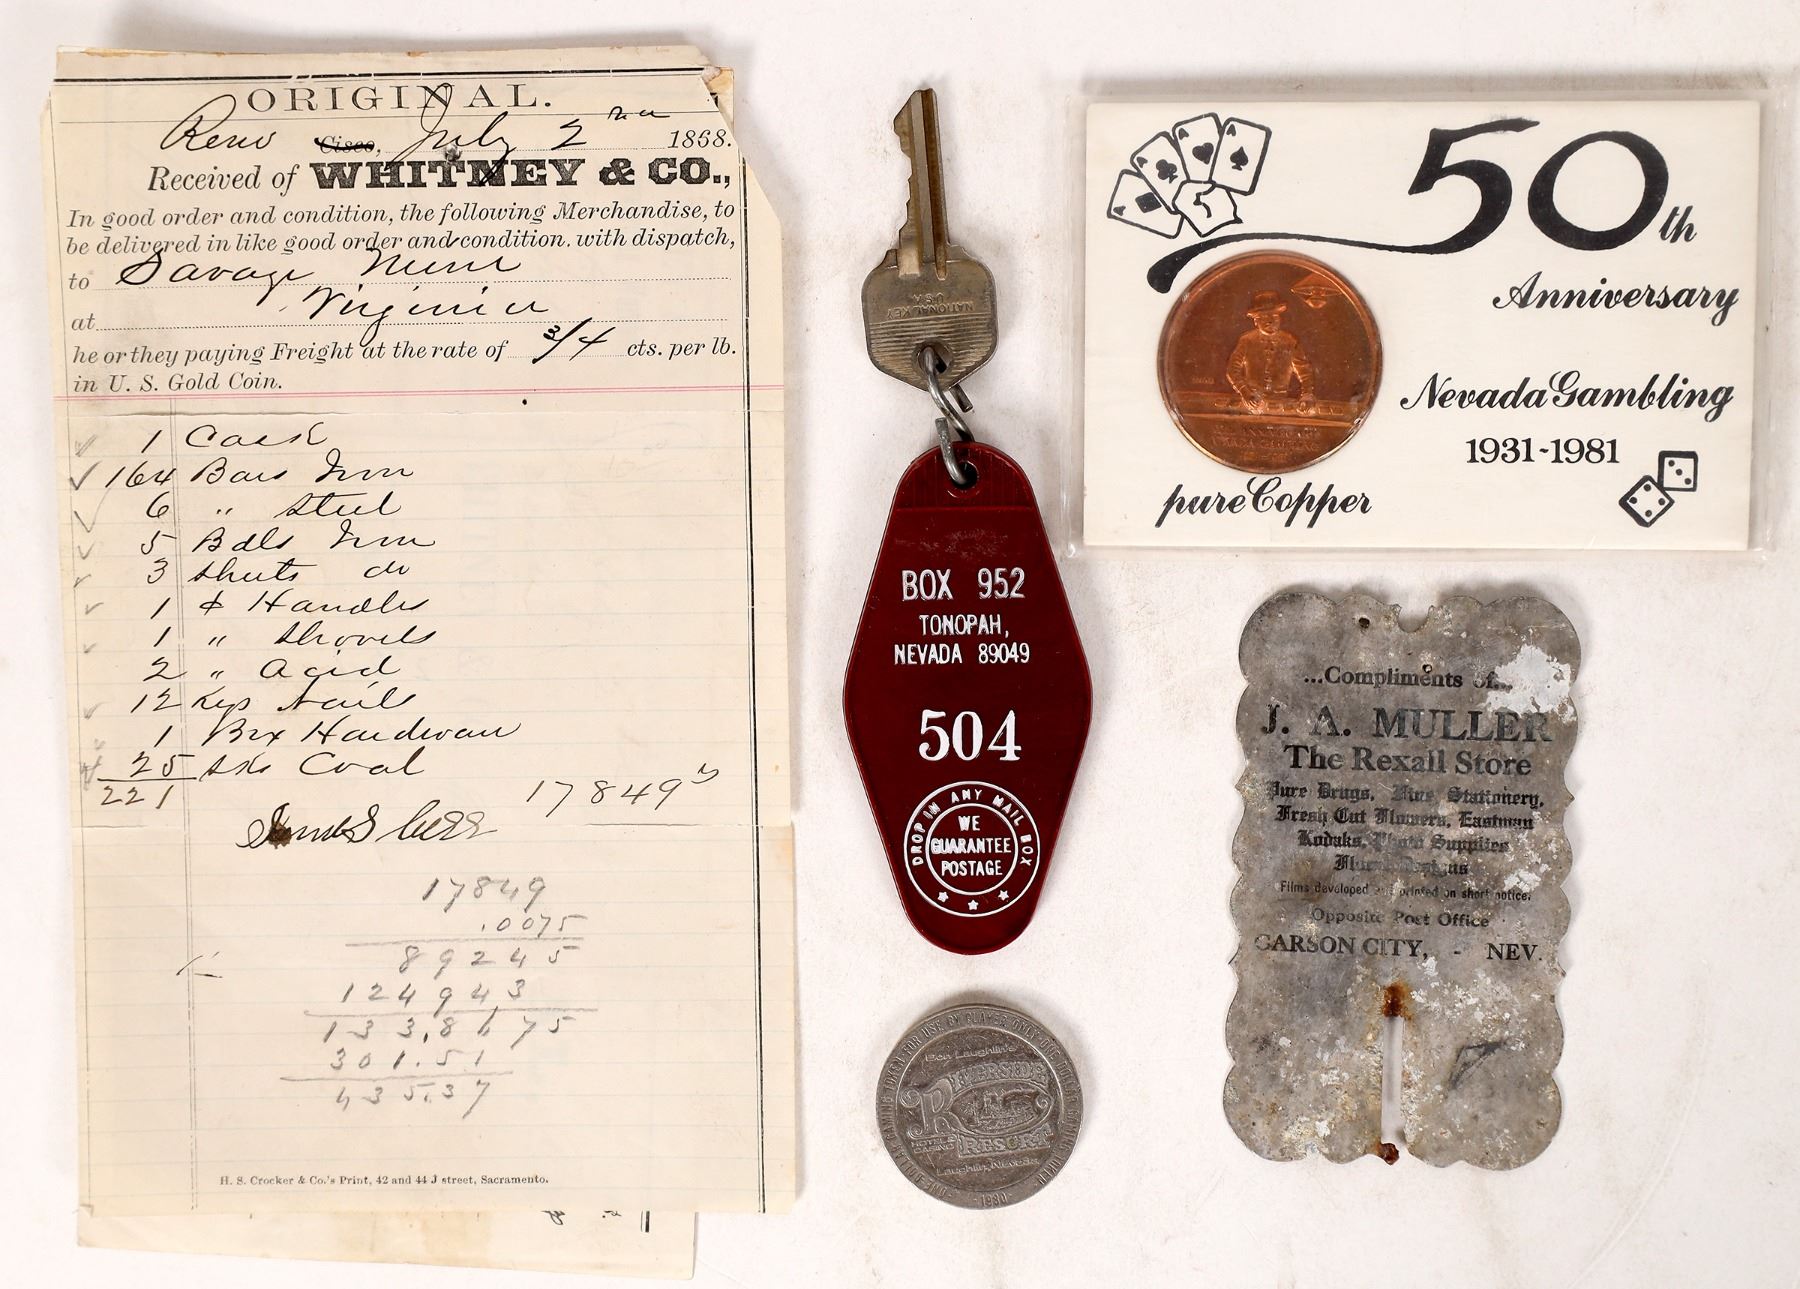 ORIGINAL.
Reno Cisco, July 2 1868.
Received of WHITNEY & CO.,
In good order and condition, the following Merchandise, to
be delivered in like good order and condition. with dispatch,
to Savage Mine
at Virginia
he or they paying Freight at the rate of 3/4 cts. per lb.
in U. S. Gold Coin.
1 Cask
164 Bars Iron
6 " Steel
5 Bdls Iron
3 Sheets do
1 Handles
1 " Shovels
2 " Acid
12 Kegs Nails
1 Box Hardware
25 Sks Coal
221 17849
17849
.0075
89245
124943
133.8675
301.51
435.37
H. S. Crocker & Co.'s Print, 42 and 44 J street, Sacramento.
NATIONAL KEY
U.S.A.
BOX 952
TONOPAH,
NEVADA 89049
504
DROP IN ANY MAIL BOX
WE
GUARANTEE
POSTAGE
ONE DOLLAR GAMING TOKEN FOR USE BY PLAYER ONLY
Don Laughlin's
RIVERSIDE
HOTEL &
CASINO
RESORT
Laughlin, Nevada
1980
50th
Anniversary
Nevada Gambling
1931-1981
pure Copper
A A A A
...Compliments of...
J. A. MULLER
The Rexall Store
Pure Drugs, Fine Stationery,
Fresh Cut Flowers, Eastman
Kodaks, Photo Supplies
Floral Designs
Films developed and printed on short notice.
Opposite Post Office
CARSON CITY, - NEV.